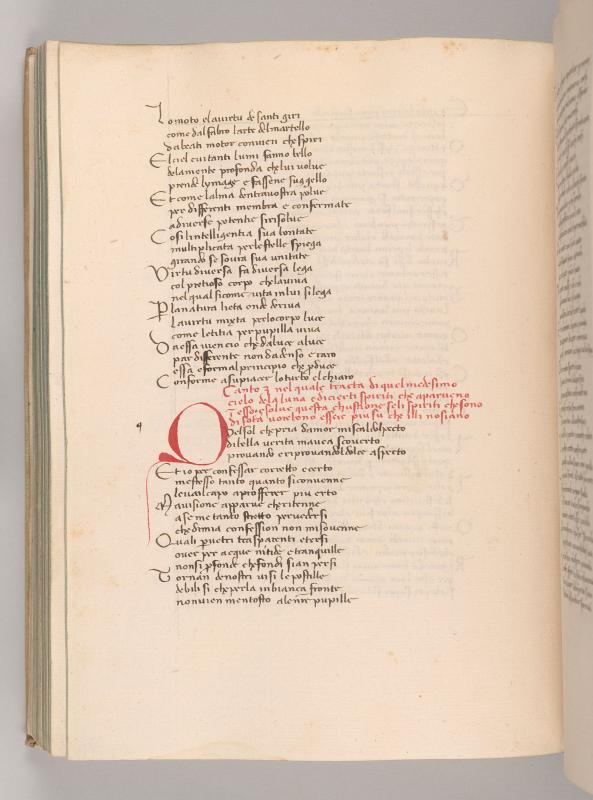 Lo moto e lavirtu de santi giri
come dal fabro larte del martello
da beati motor convien che spiri
El ciel cui tanti lumi fanno bello
dela mente profonda che lui volve
prende lymage e fassene suggello
Et come lalma dentra vostra polve
per differenti membra e conformate
a diverse potentie si risolve
Cosi lintelligentia sua bontate
multiplicata per le stelle spiega
girando se sovra sua unitate
Virtu diversa fa diversa lega
col pretioso corpo chelaviva
nel qual sicome vita in lui si lega
Per la natura lieta onde deriva
la virtu mixta per lo corpo luce
come letitia per pupilla viva
Da essa vien cio che da luce a luce
par differente non da denso e raro
essa e formal principio che produce
Conforme a sua piacer lo turbo el chiaro
Canto 3 nel quale tracta di quel medesimo
cielo dela luna e di cierti spiriti che aparveno
Q
uel sol che pria damor mi scaldo l pecto
di bella verita mavea scoverto
provando e riprovando l dolce aspecto
Et io per confessar corretto e certo
me stesso tanto quanto si convenne
levai l capo a profferer piu erto
Ma visione apparve che ritenne
a se me tanto stretto per vedersi
che di mia confession non mi sovenne
Quali per vetri trasparenti e tersi
over per acque nitide e tranquille
non si profonde che fondi sian persi
Tornan de nostri visi le postille
debili si che perla in bianca fronte
non vien men tosto a le nostre pupille